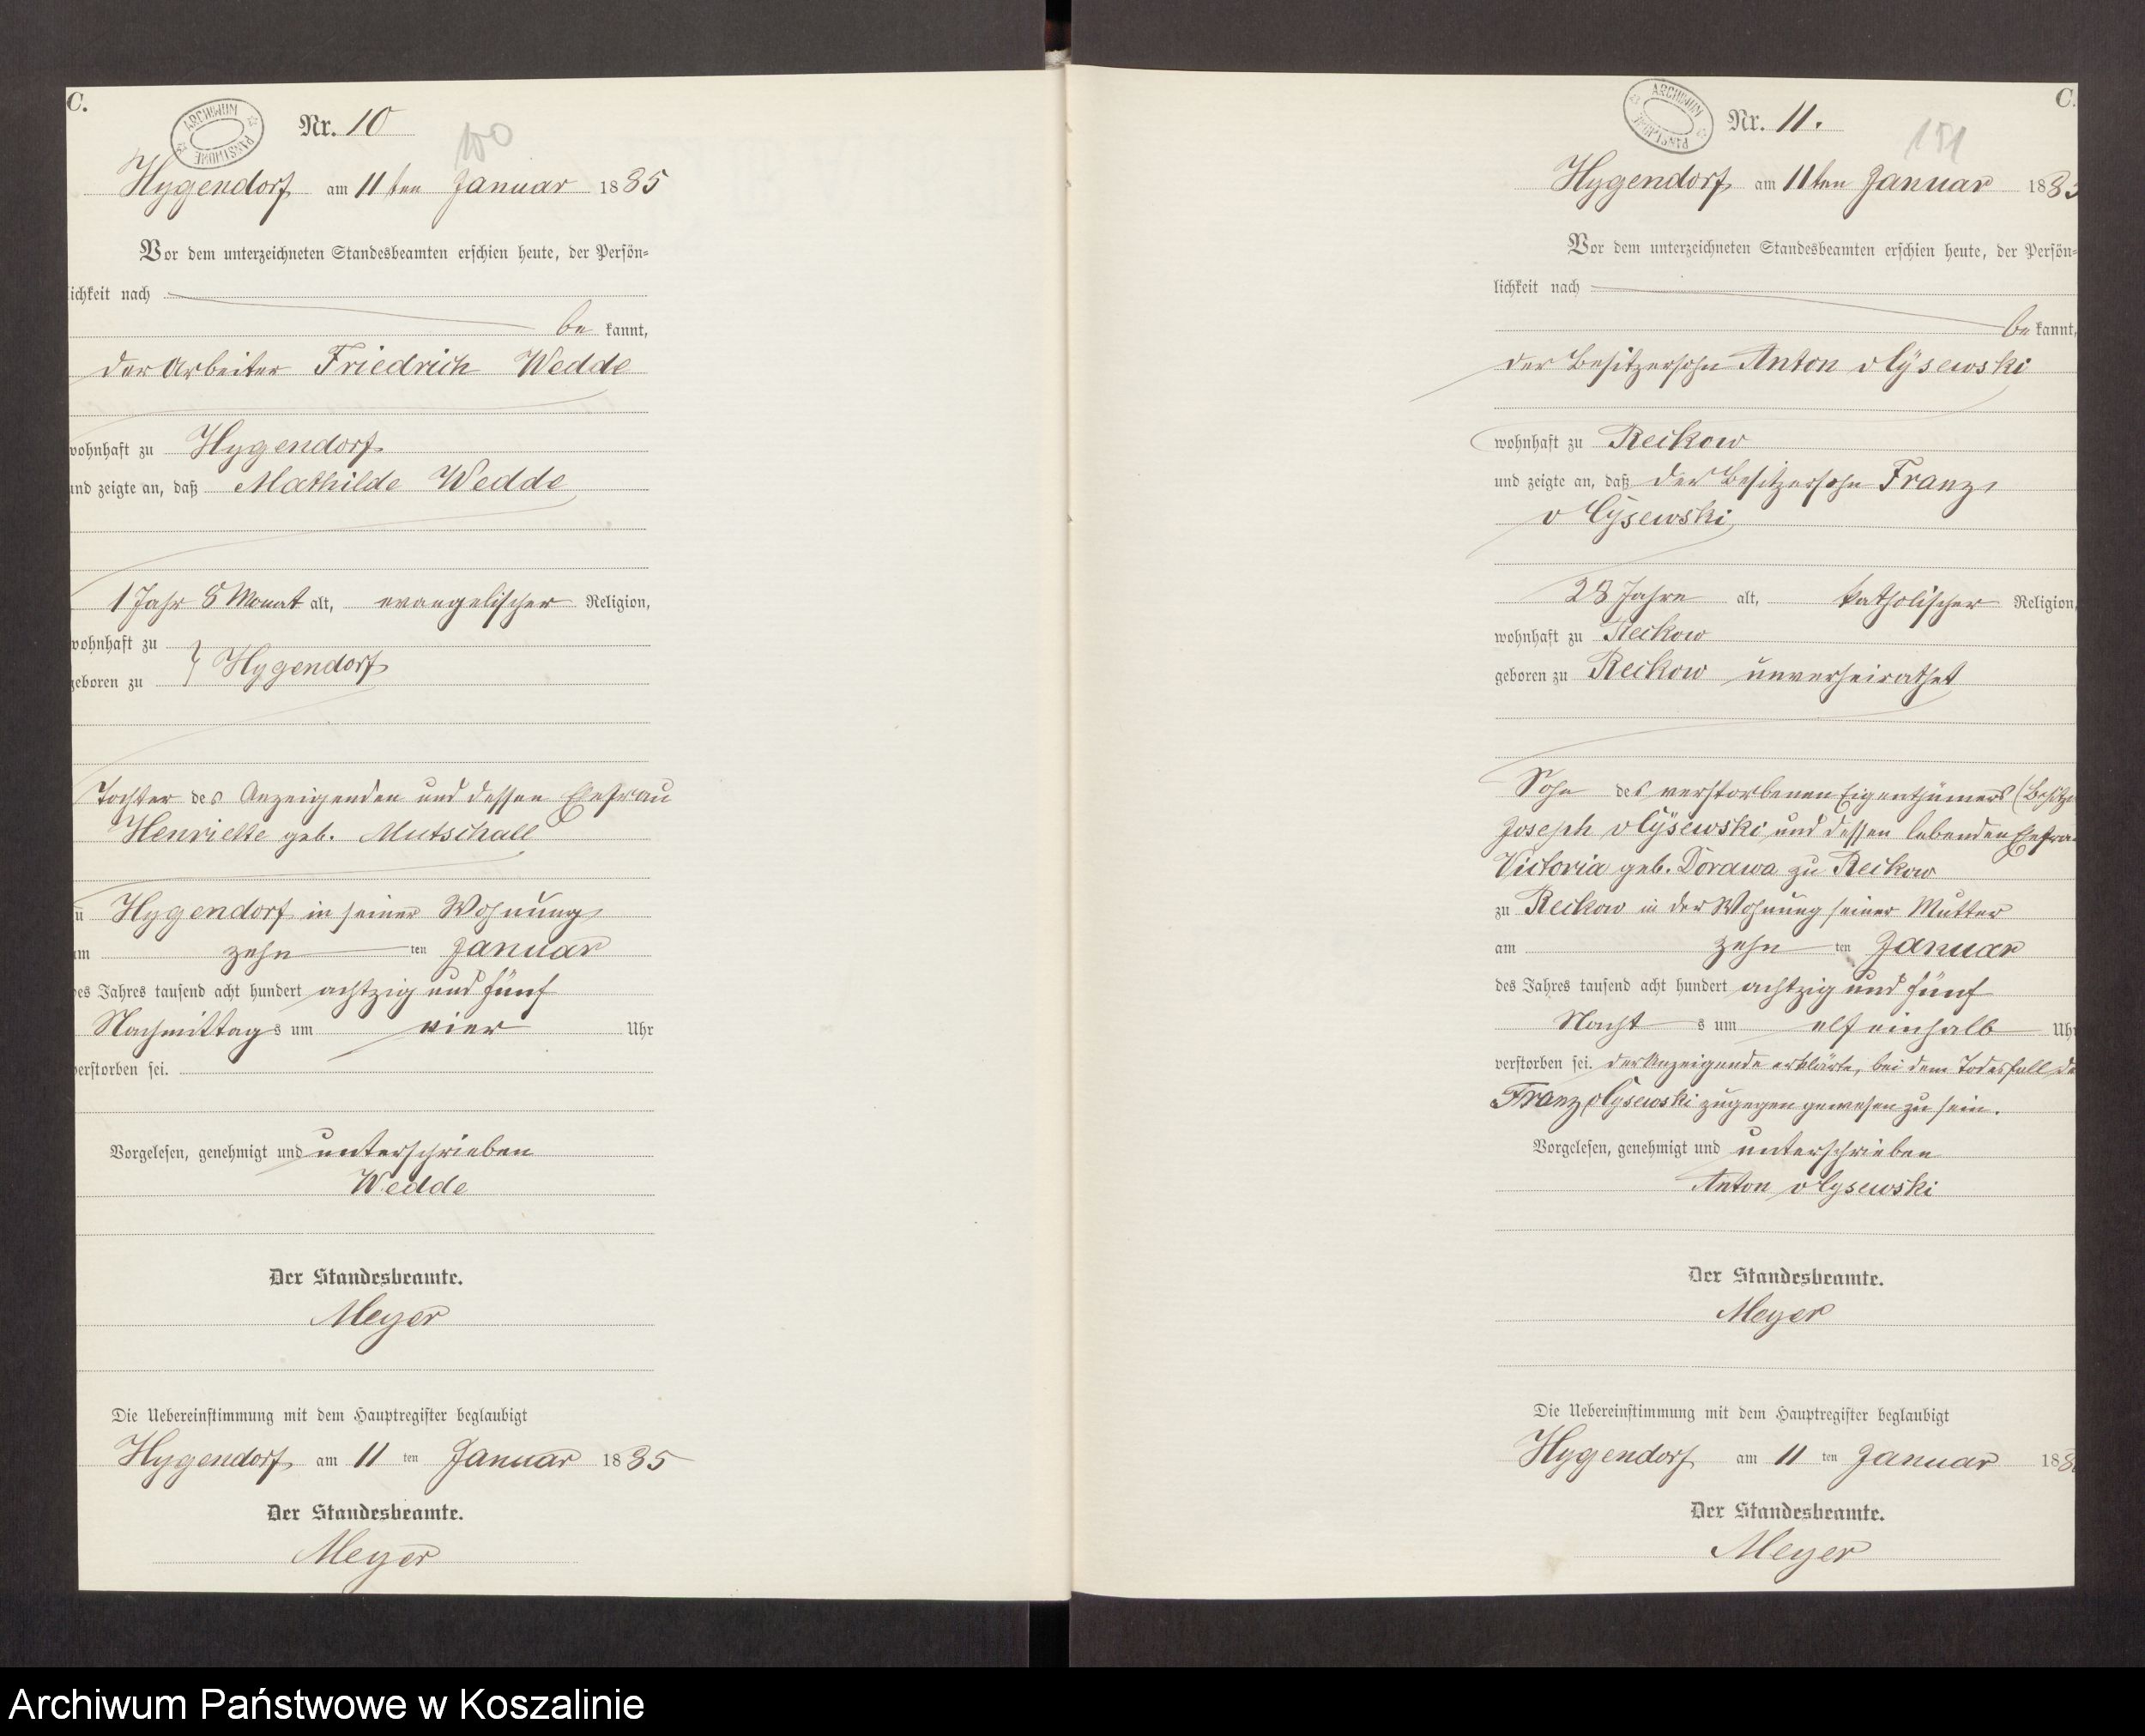 C.
ARCHIWUM PAŃSTWOWE
Nr. 10
100
Hygendorf am 11ten Januar 1885
Vor dem unterzeichneten Standesbeamten erschien heute, der Persön-
lichkeit nach
be kannt,
der Arbeiter Friedrich Wedde
wohnhaft zu Hygendorf
und zeigte an, daß Mathilde Wedde
1 Jahr 8 Monat alt, evangelischer Religion,
wohnhaft zu
geboren zu } Hygendorf
Tochter des Anzeigenden und dessen Ehefrau
Henriette geb. Mutschall
zu Hygendorf in seiner Wohnung
am zehn ten Januar
des Jahres tausend acht hundert achtzig und fünf
Nachmittag s um vier Uhr
verstorben sei.
Vorgelesen, genehmigt und unterschrieben
Wedde
Der Standesbeamte.
Meyer
Die Uebereinstimmung mit dem Hauptregister beglaubigt
Hygendorf am 11 ten Januar 1885
Der Standesbeamte.
Meyer
C.
ARCHIWUM PAŃSTWOWE
Nr. 11.
151
Hygendorf am 11ten Januar 188
Vor dem unterzeichneten Standesbeamten erschien heute, der Persön-
lichkeit nach
be kannt,
der Besitzersohn Anton v Cysewski
wohnhaft zu Reckow
und zeigte an, daß der Besitzersohn Franz
v Cysewski
28 Jahre alt, katholischer Religion,
wohnhaft zu Reckow
geboren zu Reckow unverheirathet
Sohn des verstorbenen Eigenthümers (Besitze
Joseph v Cysewski und dessen lebenden Ehefra
Victoria geb. Dorawa zu Reckow
zu Reckow in der Wohnung seiner Mutter
am zehn ten Januar
des Jahres tausend acht hundert achtzig und fünf
Nacht s um elf einhalb Uhr
verstorben sei. der Anzeigende erklärte, bei dem Todesfall de
Franz v Cysewski zugegen gewesen zu sein.
Vorgelesen, genehmigt und unterschrieben
Anton v Cysewski
Der Standesbeamte.
Meyer
Die Uebereinstimmung mit dem Hauptregister beglaubigt
Hygendorf am 11 ten Januar 188
Der Standesbeamte.
Meyer
Archiwum Państwowe w Koszalinie